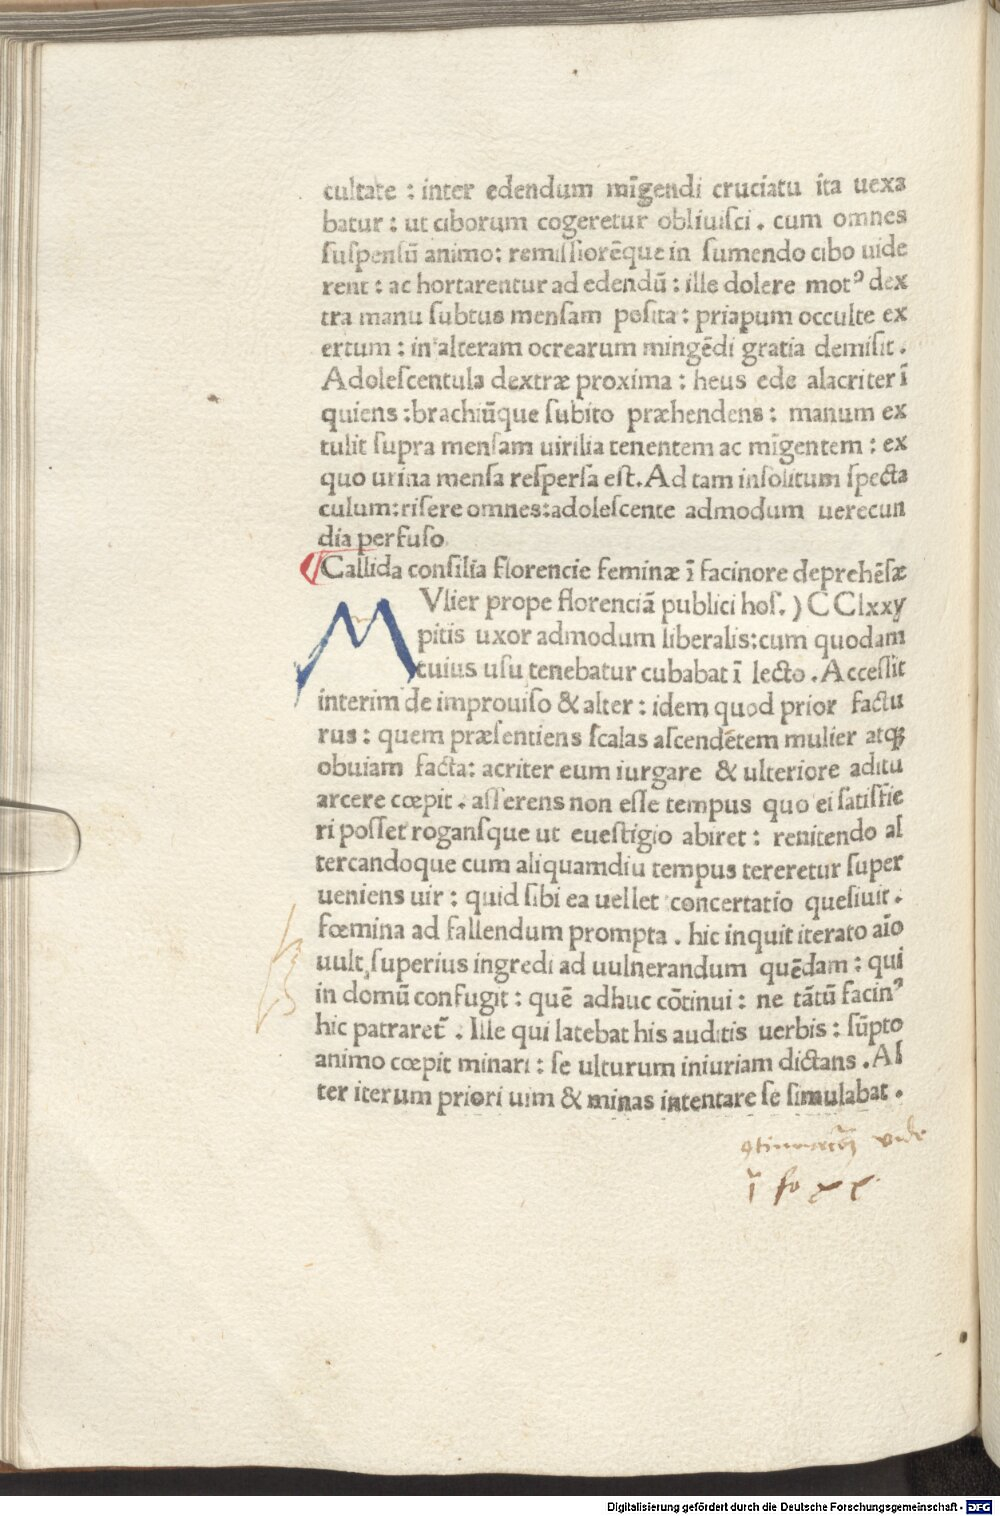 cultate : inter edendum mīgendi cruciatu ita uexa
batur : ut ciborum cogeretur obliuiſci . cum omnes
ſuſpenſū animo: remiſſiorēque in ſumendo cibo uide
rent : ac hortarentur ad edendū : ille dolere motꝰ dex
tra manu ſubtus menſam poſita : priapum occulte ex
ertum : in alteram ocrearum mingēdi gratia demiſit .
Adoleſcentula dextræ proxima : heus ede alacriter ī
quiens : brachiūque ſubito præhendens : manum ex
tulit ſupra menſam uirilia tenentem ac mīgentem : ex
quo urina menſa reſperſa eſt. Ad tam inſolitum ſpecta
culum: riſere omnes: adoleſcente admodum uerecun
dia perfuſo
¶ Callida conſilia florencie feminæ ī facinore deprehēſæ
MVlier prope florenciā publici hoſ. ) CClxxy
pitis uxor admodum liberalis: cum quodam
cuius uſu tenebatur cubabat ī lecto . Acceſſit
interim de improuiſo & alter : idem quod prior factu
rus : quem præſentiens ſcalas aſcendētem mulier atqꝫ
obuiam facta: acriter eum iurgare & ulteriore aditu
arcere cœpit . aſſerens non eſſe tempus quo ei ſatiſfie
ri poſſet roganſque ut eueſtigio abiret : renitendo al
tercandoque cum aliquamdiu tempus tereretur ſuper
ueniens uir : quid ſibi ea uellet concertatio queſiuit .
fœmina ad fallendum prompta . hic inquit iterato aīo
uult ſuperius ingredi ad uulnerandum quēdam : qui
in domū confugit : quē adhuc cōtinui : ne tātū facinꝰ
hic patraret̄ . Ille qui latebat his auditis uerbis : ſūpto
animo cœpit minari : ſe ulturum iniuriam dictans . Al
ter iterum priori uim & minas intentare ſe ſimulabat .
vide
ī fo xx
Digitalisierung gefördert durch die Deutsche Forschungsgemeinschaft - DFG